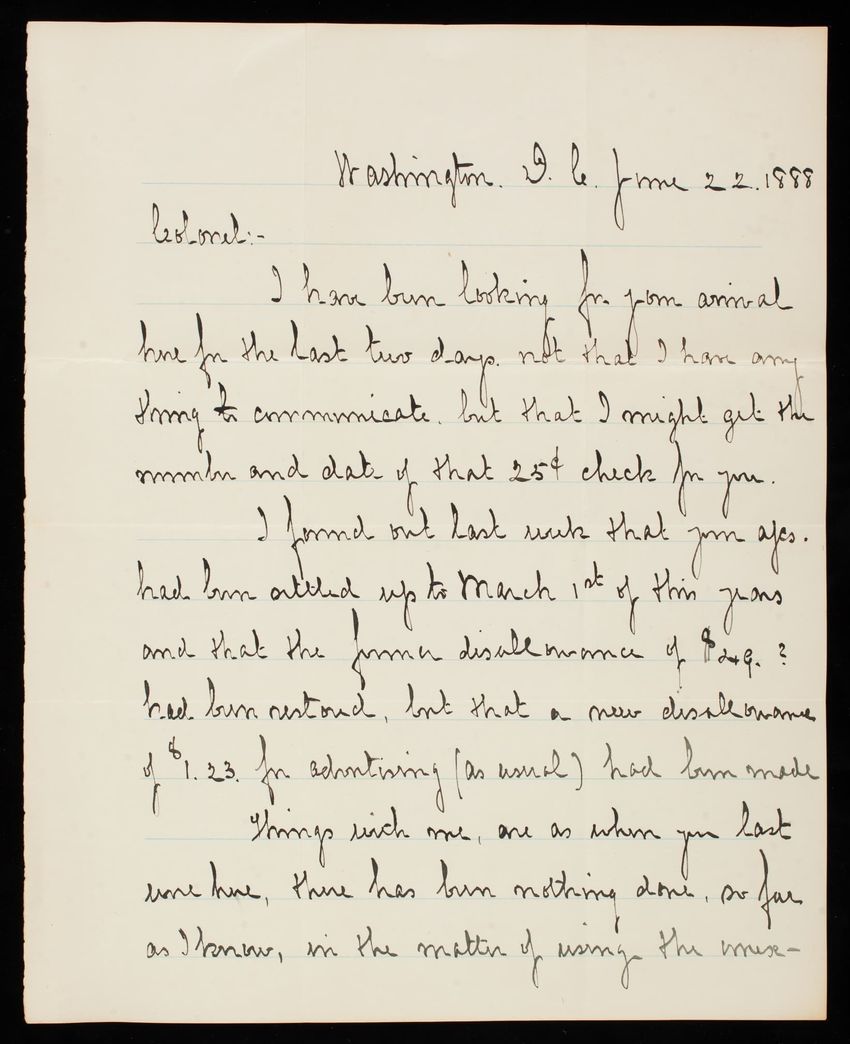 Washington. D. C. June 22. 1888
Colonel:-
I have been looking for your arrival
here for the last two days. not that I have any
thing to communicate. but that I might get the
number and date of that 25¢ check for you.
I found out last week that your a/cs.
had been settled up to March 1st of this years
and that the former disallowance of $249. ?
had been restored, but that a new disallowance
of $1.23. for advertising (as usual) had been made
Things with me, are as when you last
were here, there has been nothing done, so far
as I know, in the matter of using the unex-